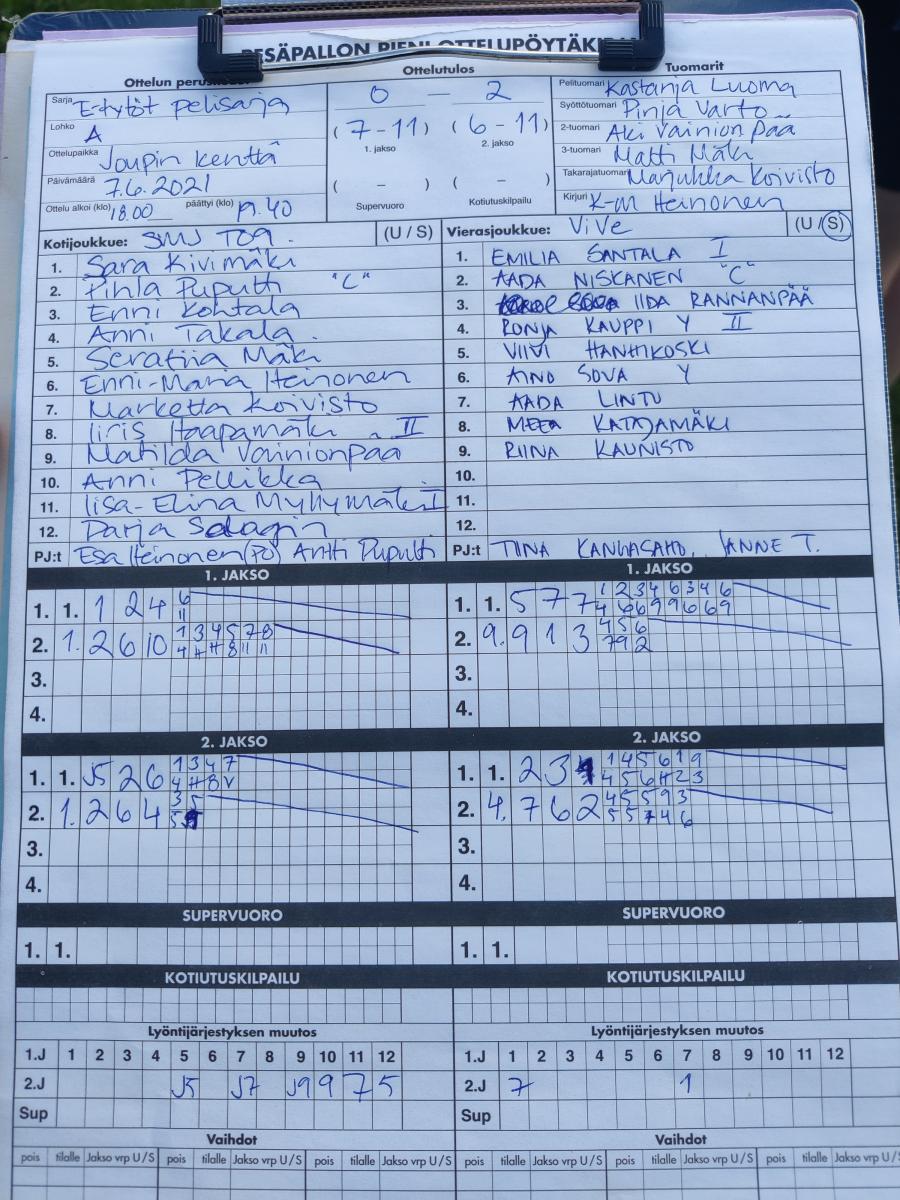 PESÄPALLON PIENI OTTELUPÖYTÄKIRJA
Ottelun perustiedot
Sarja E-tytöt pelisarja
Lohko A
Ottelupaikka Joupin kenttä
Päivämäärä 7.6.2021
Ottelu alkoi (klo) 18.00 päättyi (klo) 19.40
Ottelutulos
0 – 2
(7-11) (6-11)
1. jakso 2. jakso
( – ) ( – )
Supervuoro Kotiutuskilpailu
Tuomarit
Pelituomari Kastanja Luoma
Syöttötuomari Pinja Varto
2-tuomari Aki Vainionpää
3-tuomari Matti Mäki
Takarajatuomari Marjukka Koivisto
Kirjuri K-M Heinonen
Kotijoukkue: SMJ T09 (U / S)
1. Sara Kivimäki
2. Pihla Puputti "C"
3. Enni Kohtala
4. Anni Takala
5. Serafiia Mäki
6. Enni-Maria Heinonen
7. Marketta Koivisto
8. Iiris Haapamäki II
9. Matilda Vainionpää
10. Anni Pellikka
11. Iisa-Elina Myllymäki I
12. Darja
PJ:t Esa Heinonen (PJ) Antti Puputti
Vierasjoukkue: ViVe (U / S)
1. EMILIA SANTALA I
2. AADA NISKANEN "C"
3. IIDA RANNANPÄÄ
4. RONJA KAUPPI Y II
5. VIIVI HANHIKOSKI
6. AINO SOVA Y
7. AADA LINTU
8. MEEA KATAJAMÄKI
9. RIINA KAUNISTO
10.
11.
12.
PJ:t TIINA KANGASAHO, JANNE T.
1. JAKSO
1. 1. 1 2 4 6
11
2. 1. 2 6 10 1 3 4 5 7 8
3.
4.
1. JAKSO
1. 1. 5 7 7 1 2 3 4 6 3 4 6
4 6 6 9 9 6 6 9
2. 9. 9 1 3 4 5 6
7 9 2
3.
4.
2. JAKSO
1. 1. J5 2 6 1 3 4 7
2. 1. 2 6 4 3 5
3.
4.
2. JAKSO
1. 1. 2 3 1 4 5 6 1 9
2. 4. 7 6 2 4 5 5 9 3
5 5 7 4 6
3.
4.
SUPERVUORO
1. 1.
SUPERVUORO
1. 1.
KOTIUTUSKILPAILU
KOTIUTUSKILPAILU
Lyöntijärjestyksen muutos
1.J 1 2 3 4 5 6 7 8 9 10 11 12
2.J J5 J7 J9 9 7 5
Sup
Lyöntijärjestyksen muutos
1.J 1 2 3 4 5 6 7 8 9 10 11 12
2.J 7 1
Sup
Vaihdot
pois tilalle Jakso vrp U/S pois tilalle Jakso vrp U/S pois tilalle Jakso vrp U/S
Vaihdot
pois tilalle Jakso vrp U/S pois tilalle Jakso vrp U/S pois tilalle Jakso vrp U/S